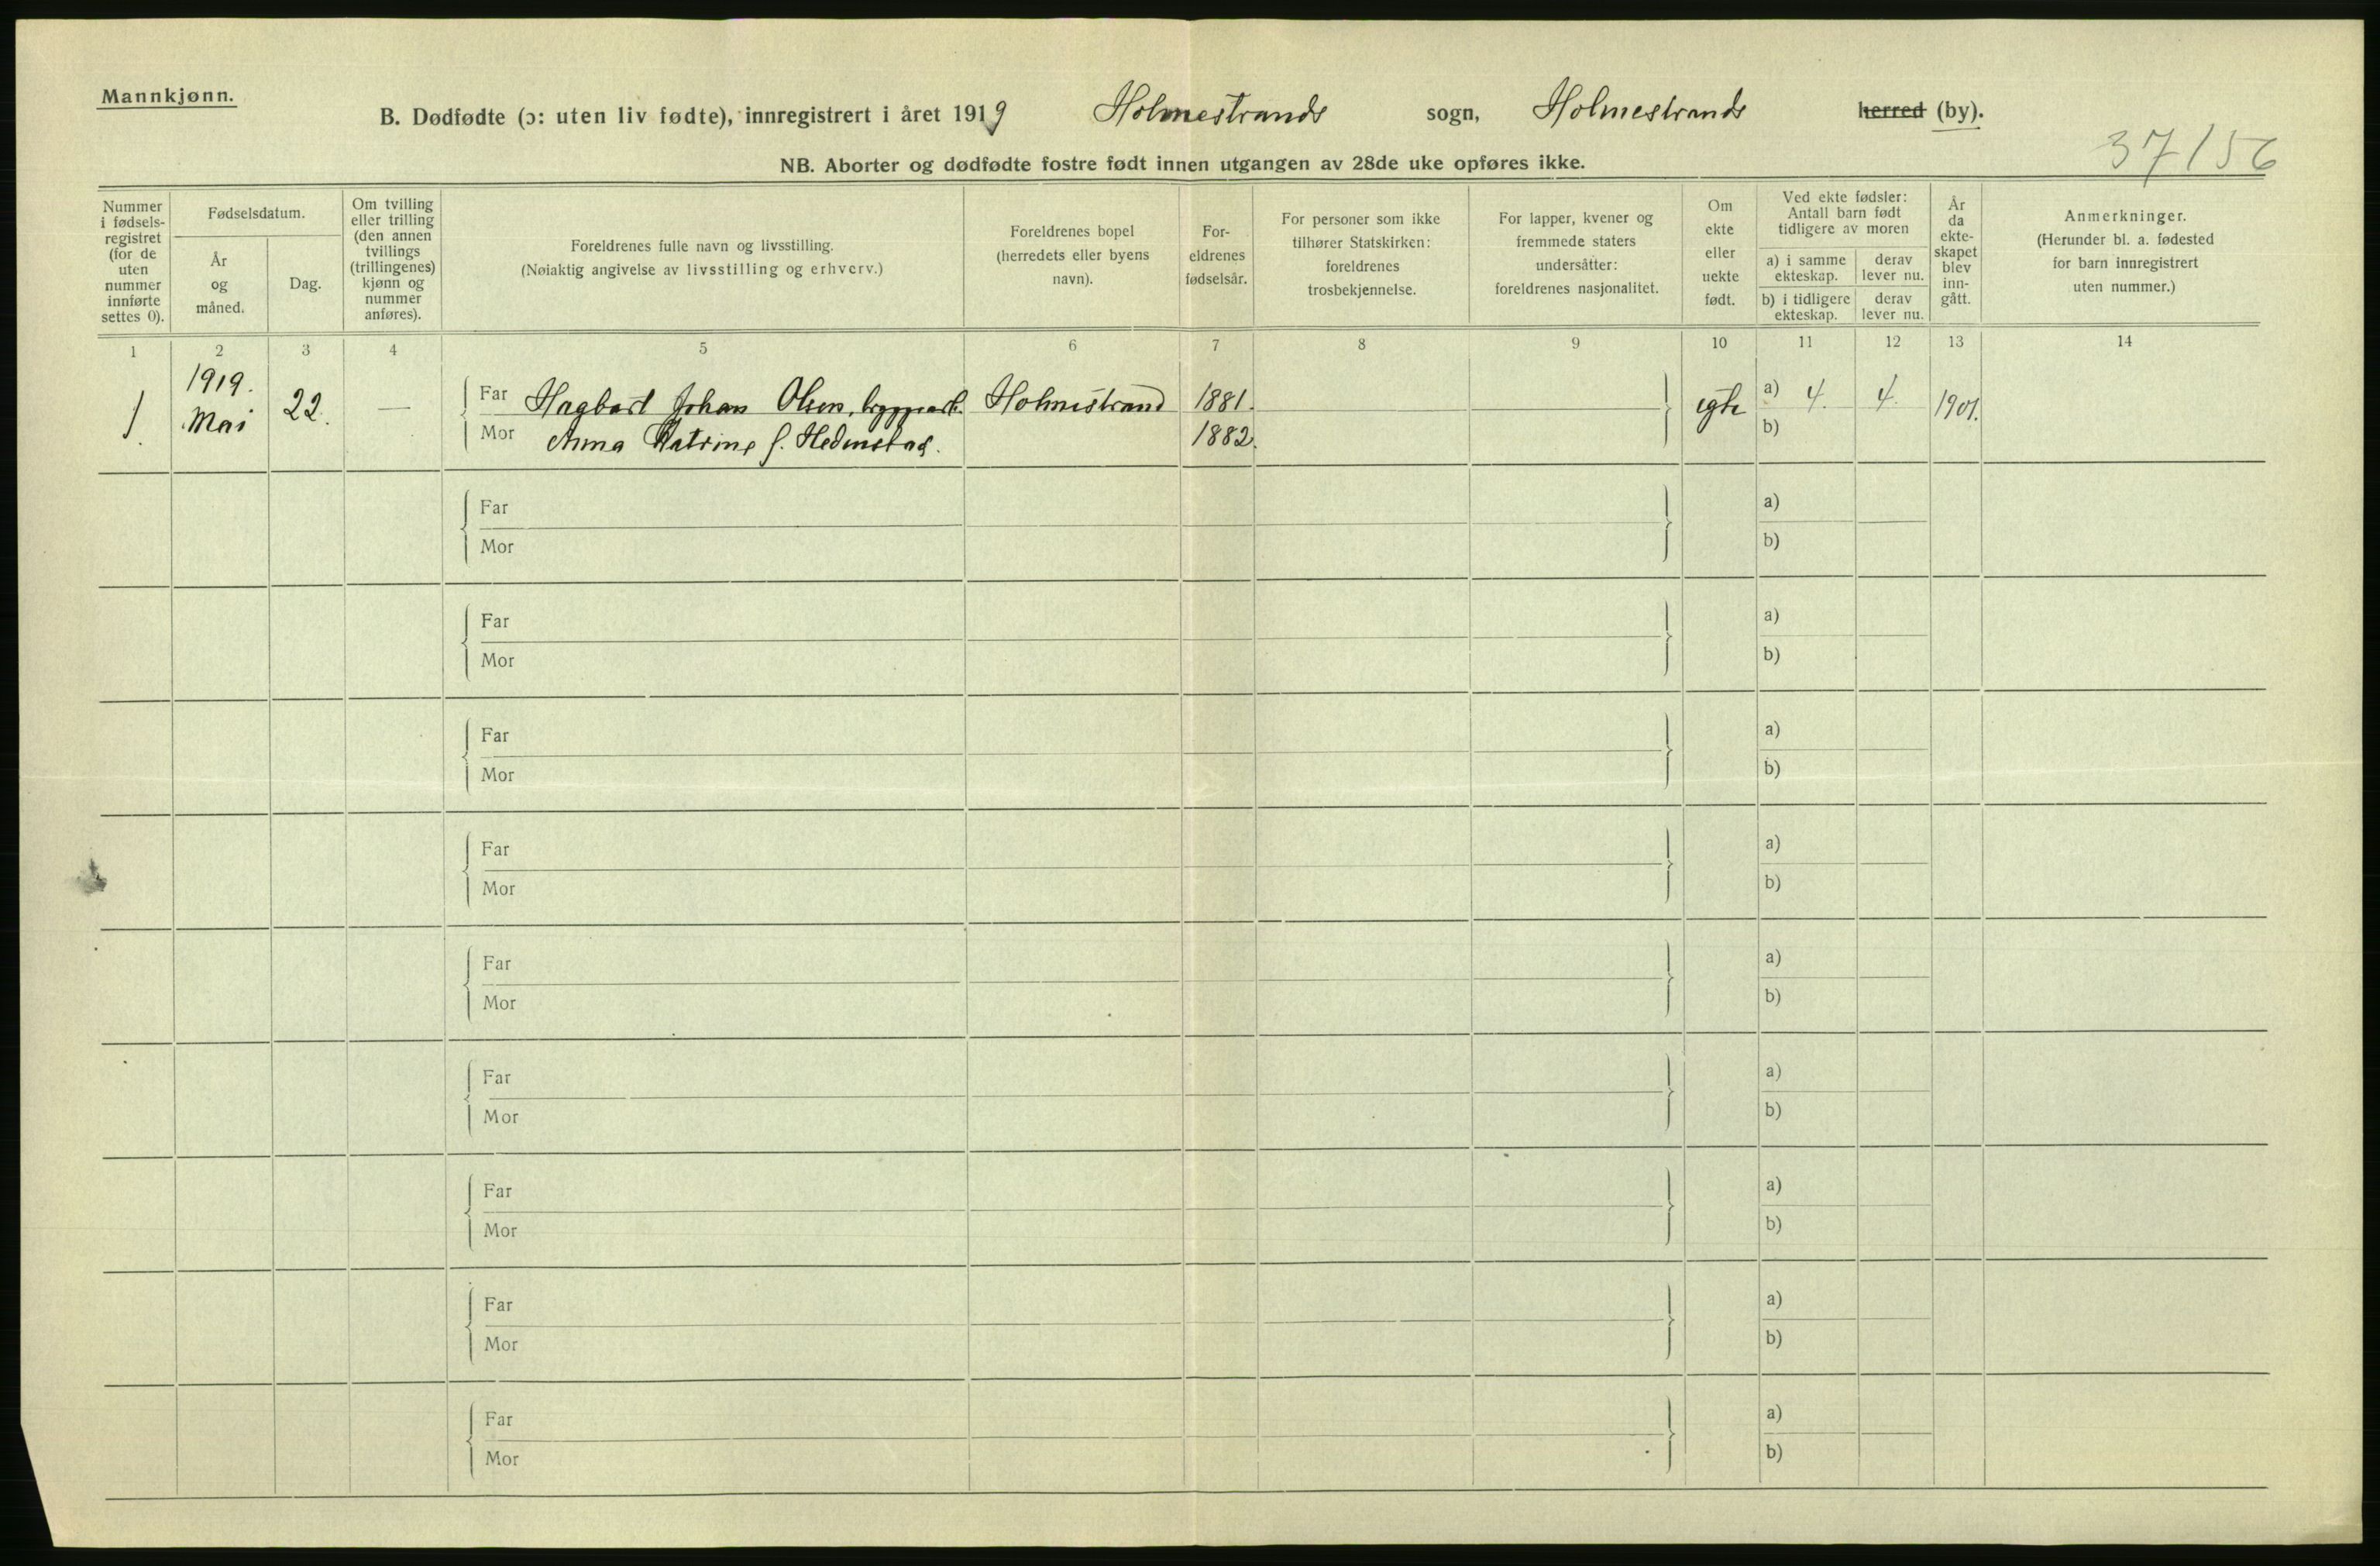 Mannkjønn.
B. Dødfødte (ɔ: uten liv fødte), innregistrert i året 1919 Holmestrands sogn, Holmestrands herred (by).
37/56
NB. Aborter og dødfødte fostre født innen utgangen av 28de uke opføres ikke.
Nummer i fødsels-registret (for de uten nummer innførte settes 0).
Fødselsdatum.
År og måned.
Dag.
Om tvilling eller trilling (den annen tvillings (trillingenes) kjønn og nummer anføres).
Foreldrenes fulle navn og livsstilling.
(Nøiaktig angivelse av livsstilling og erhverv.)
Foreldrenes bopel (herredets eller byens navn).
For-eldrenes fødselsår.
For personer som ikke tilhører Statskirken: foreldrenes trosbekjennelse.
For lapper, kvener og fremmede staters undersåtter: foreldrenes nasjonalitet.
Om ekte eller uekte født.
Ved ekte fødsler: Antall barn født tidligere av moren
a) i samme ekteskap.
derav lever nu.
b) i tidligere ekteskap.
derav lever nu.
År da ekte-skapet blev inn-gått.
Anmerkninger.
(Herunder bl. a. fødested for barn innregistrert uten nummer.)
1 2 3 4 5 6 7 8 9 10 11 12 13 14
1. 1919. Mai 22. — Far Hagbart Johan Olsen, bryggearb. Holmestrand 1881. egte a) 4. 4. 1901.
Mor Anna Katrine f. Hedenstad. 1882. b)
Far a)
Mor b)
Far a)
Mor b)
Far a)
Mor b)
Far a)
Mor b)
Far a)
Mor b)
Far a)
Mor b)
Far a)
Mor b)
Far a)
Mor b)
Far a)
Mor b)